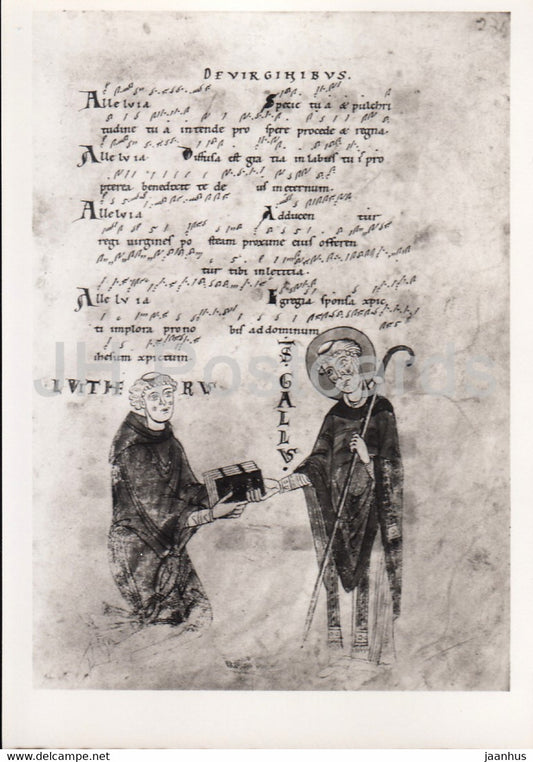 DE VIRGINIBUS.
Allelvia Specie tu a & pulchri
tudine tu a intende pro spere procede & regna.
Allelvia Diffusa est gra tia in labiis tu is pro
pterea benedixit te de us in eternum.
Allelvia Adducen tur
regi virgines po st eam proxime eius offeren
tur tibi in letitia.
Alle lv ia Egregia sponsa xpic
ti implora pro no bis ad dominum
ihesum xpictum
.S. GALLVS.
LVITHE RV
JH Postcards
hippostcard.com/store/jaanhus
jaanhus